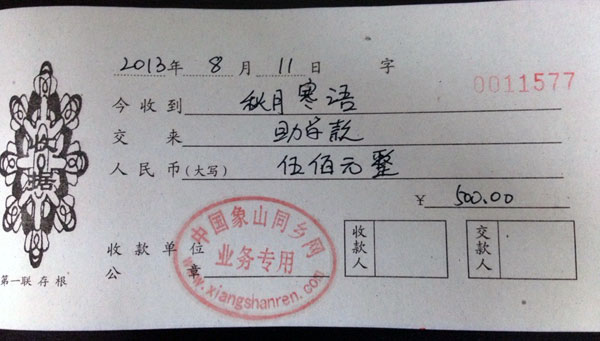 2013年 8 月 11 日 字
0011577
今收到 秋月寒语
交来 助学款
人民币(大写) 伍佰元整
¥ 500.00
收据
收款单位
公章
中国象山同乡网
业务专用
www.xiangshanren.com
收款人
交款人
第一联存根